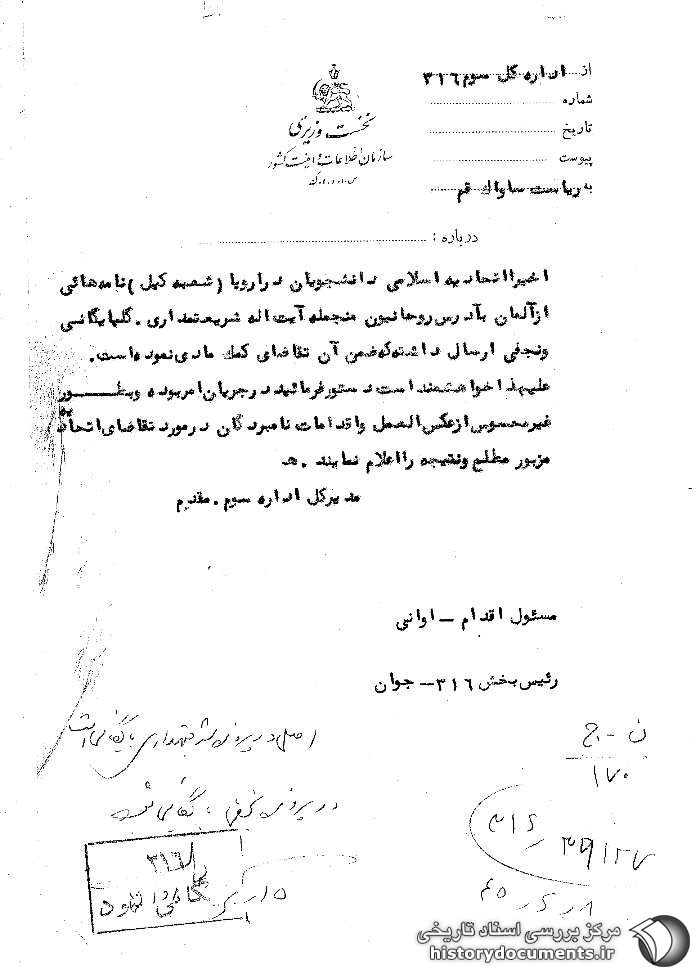 از اداره کل سوم ۳۱۶
شماره
تاریخ
پیوست
به ریاست ساواك قم
نخست وزیری
سازمان اطلاعات و امنیت کشور
س.ا.و.ا.ک
درباره :
اخیرا اتحادیه اسلامی دانشجویان در اروپا (شعبه کیل) نامه هائی
از آلمان بآدرس روحانیون منجمله آیت اله شریعتمداری . گلپایگانسی
ونجفی ارسال داشته که ضمن آن تقاضای کمك مادی نموده است .
علیهذا خواهشمند است دستور فرمائید در جریان امر بوده و بطـــــور
غیر محسوس از عکس العمل و اقدامات نامبردگان در مورد تقاضای اتحادیه
مزبور مطلع و نتیجه را اعلام نمایند . هـ
مدیر کل اداره سوم . مقدم
مسئول اقدام – اوانی
رئیس بخش ۳۱۶ – جوان
اصل در پرونده بایگانی است
ن - ج
۱۷۰
در پرونده نجفی بایگانی شود
۳۱۶
۳۱۶
۴۵ ر ۶ ر ۸
مرکز بررسی اسناد تاریخی
historydocuments.ir